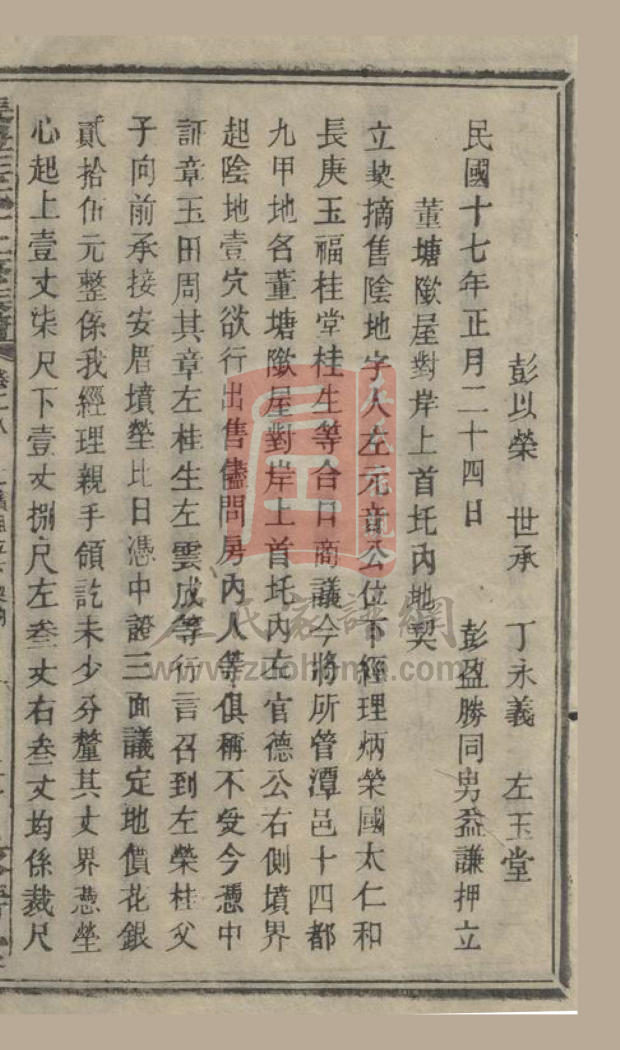 彭以榮　世承　丁永義　左玉堂
民國十七年正月二十四日　彭盈勝同男益謙押立
董塘歐屋對岸上首圫內地契
立契摘售陰地字人左元音公位下經理炳榮國太仁和
長庚玉福桂堂桂生等合口商議今將所管潭邑十四都
九甲地名董塘歐屋對岸上首圫內左官德公右側墳界
起陰地壹穴欲行出售儘問房內人等俱稱不受今憑中
証章玉田周其章左桂生左雲成等行言召到左榮桂父
子向前承接安厝墳塋比日憑中證三面議定地價花銀
貳拾伍元整係我經理親手領訖未少分釐其丈界憑塋
心起上壹丈柒尺下壹丈捌尺左叁丈右叁丈均係裁尺
左氏家譜網
www.zuohome.com